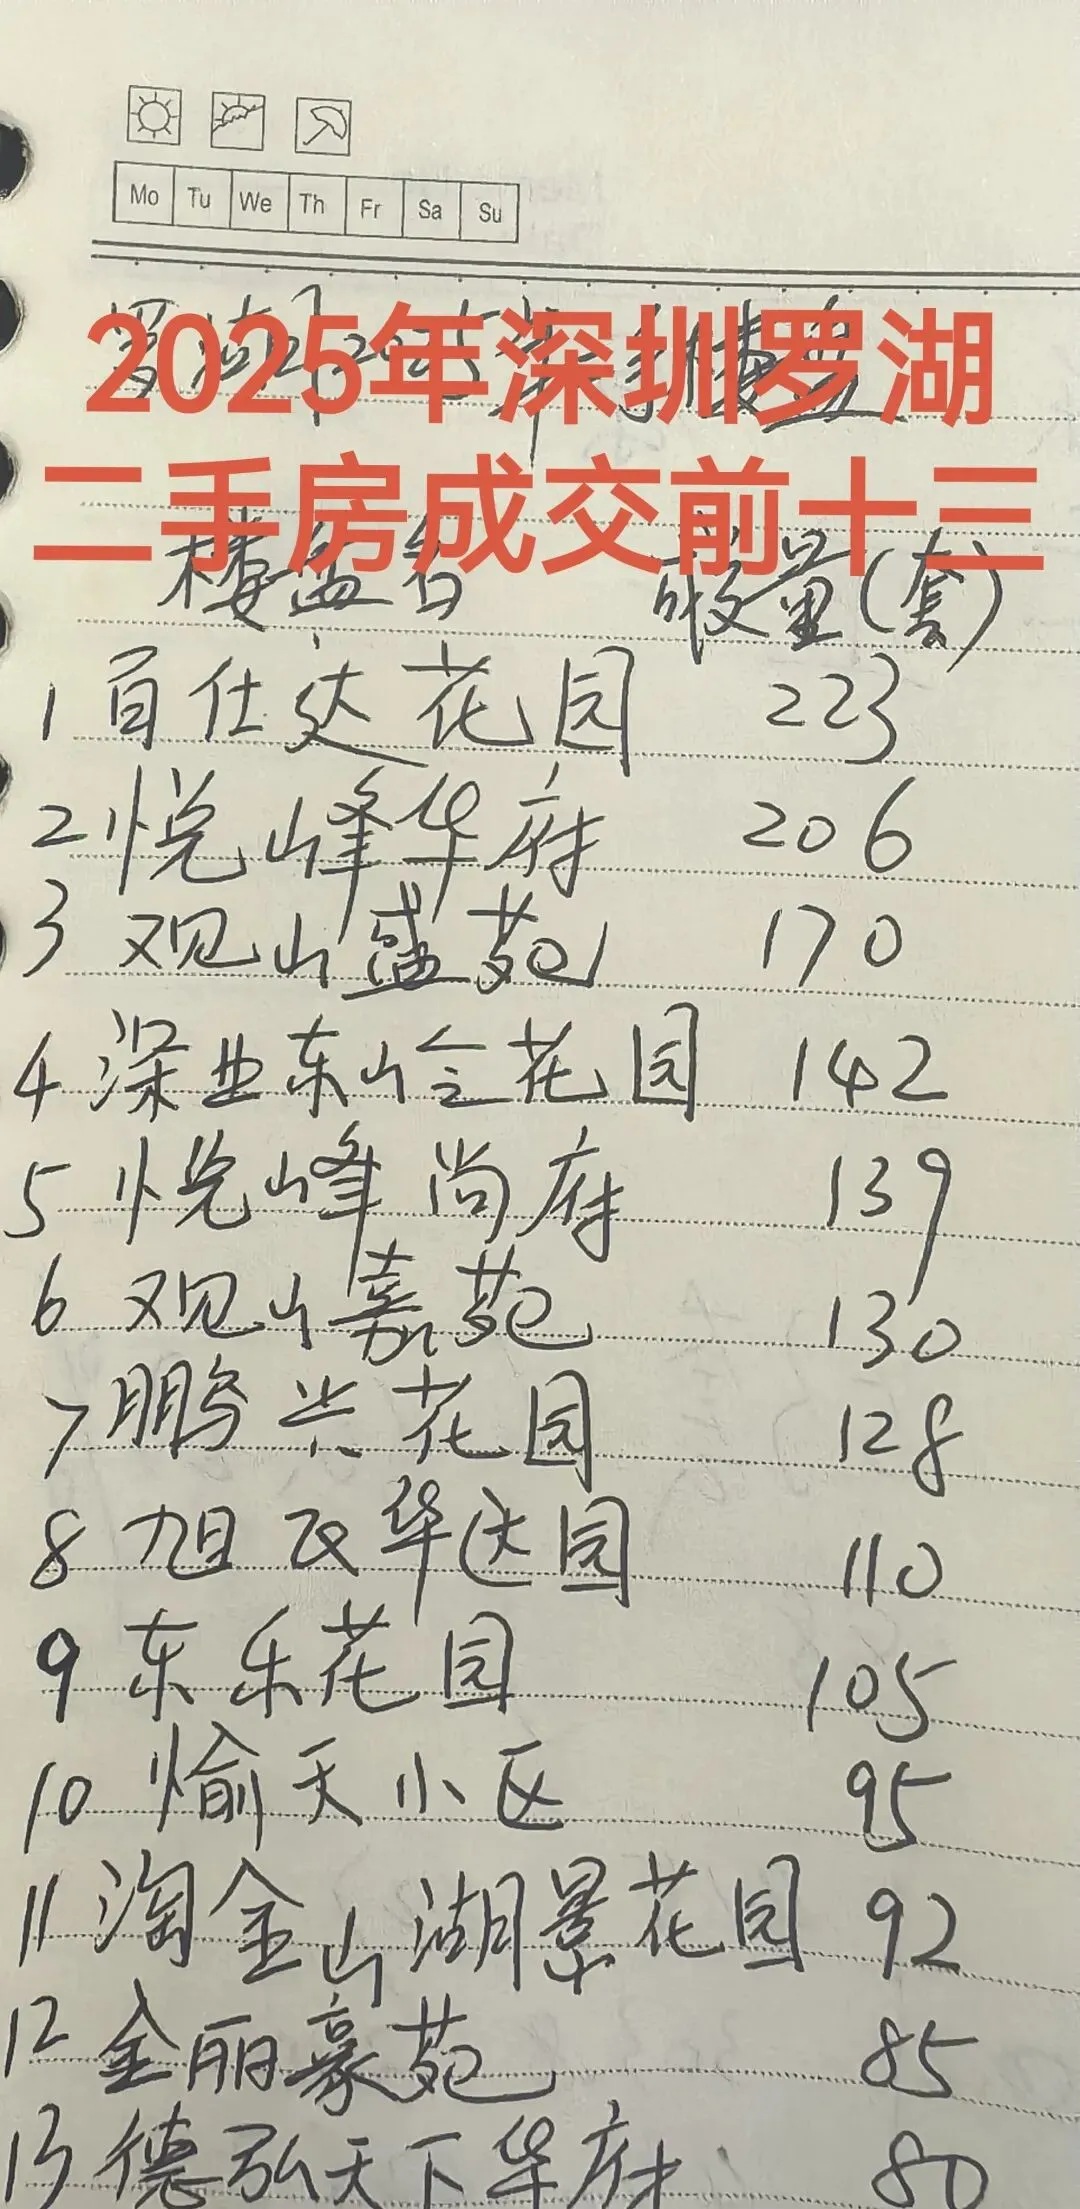 Mo Tu We Th Fr Sa Su
2025年深圳罗湖
二手房成交前十三
楼盘名 成交量(套)
1 百仕达花园 223
2 悦峰华府 206
3 观山盛苑 170
4 深业东岭花园 142
5 悦峰尚府 139
6 观山嘉苑 130
7 鹏兴花园 128
8 旭飞华达园 110
9 东乐花园 105
10 愉天小区 95
11 淘金山湖景花园 92
12 金丽豪苑 85
13 德弘天下华府 80